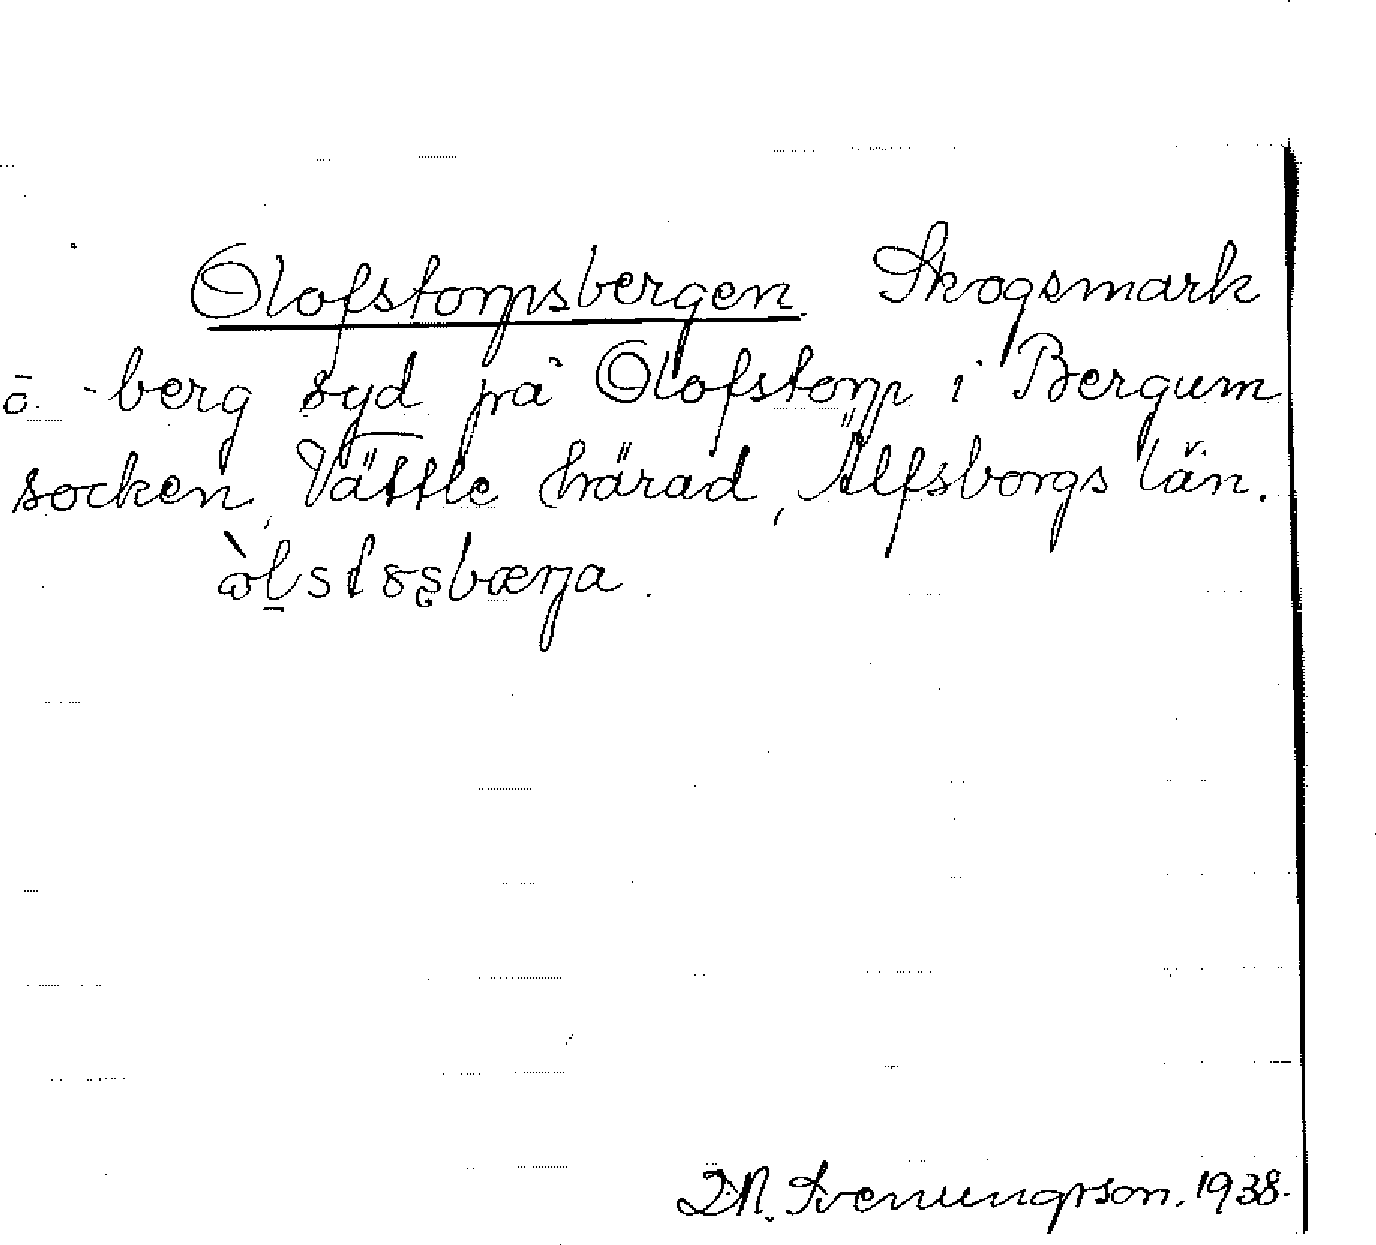 Olofstorpsbergen. Skogsmark
o. -berg syd på Olofstorp i Bergum
socken, Vättle härad, Älfsborgs län.
Svenungsson. 1938.